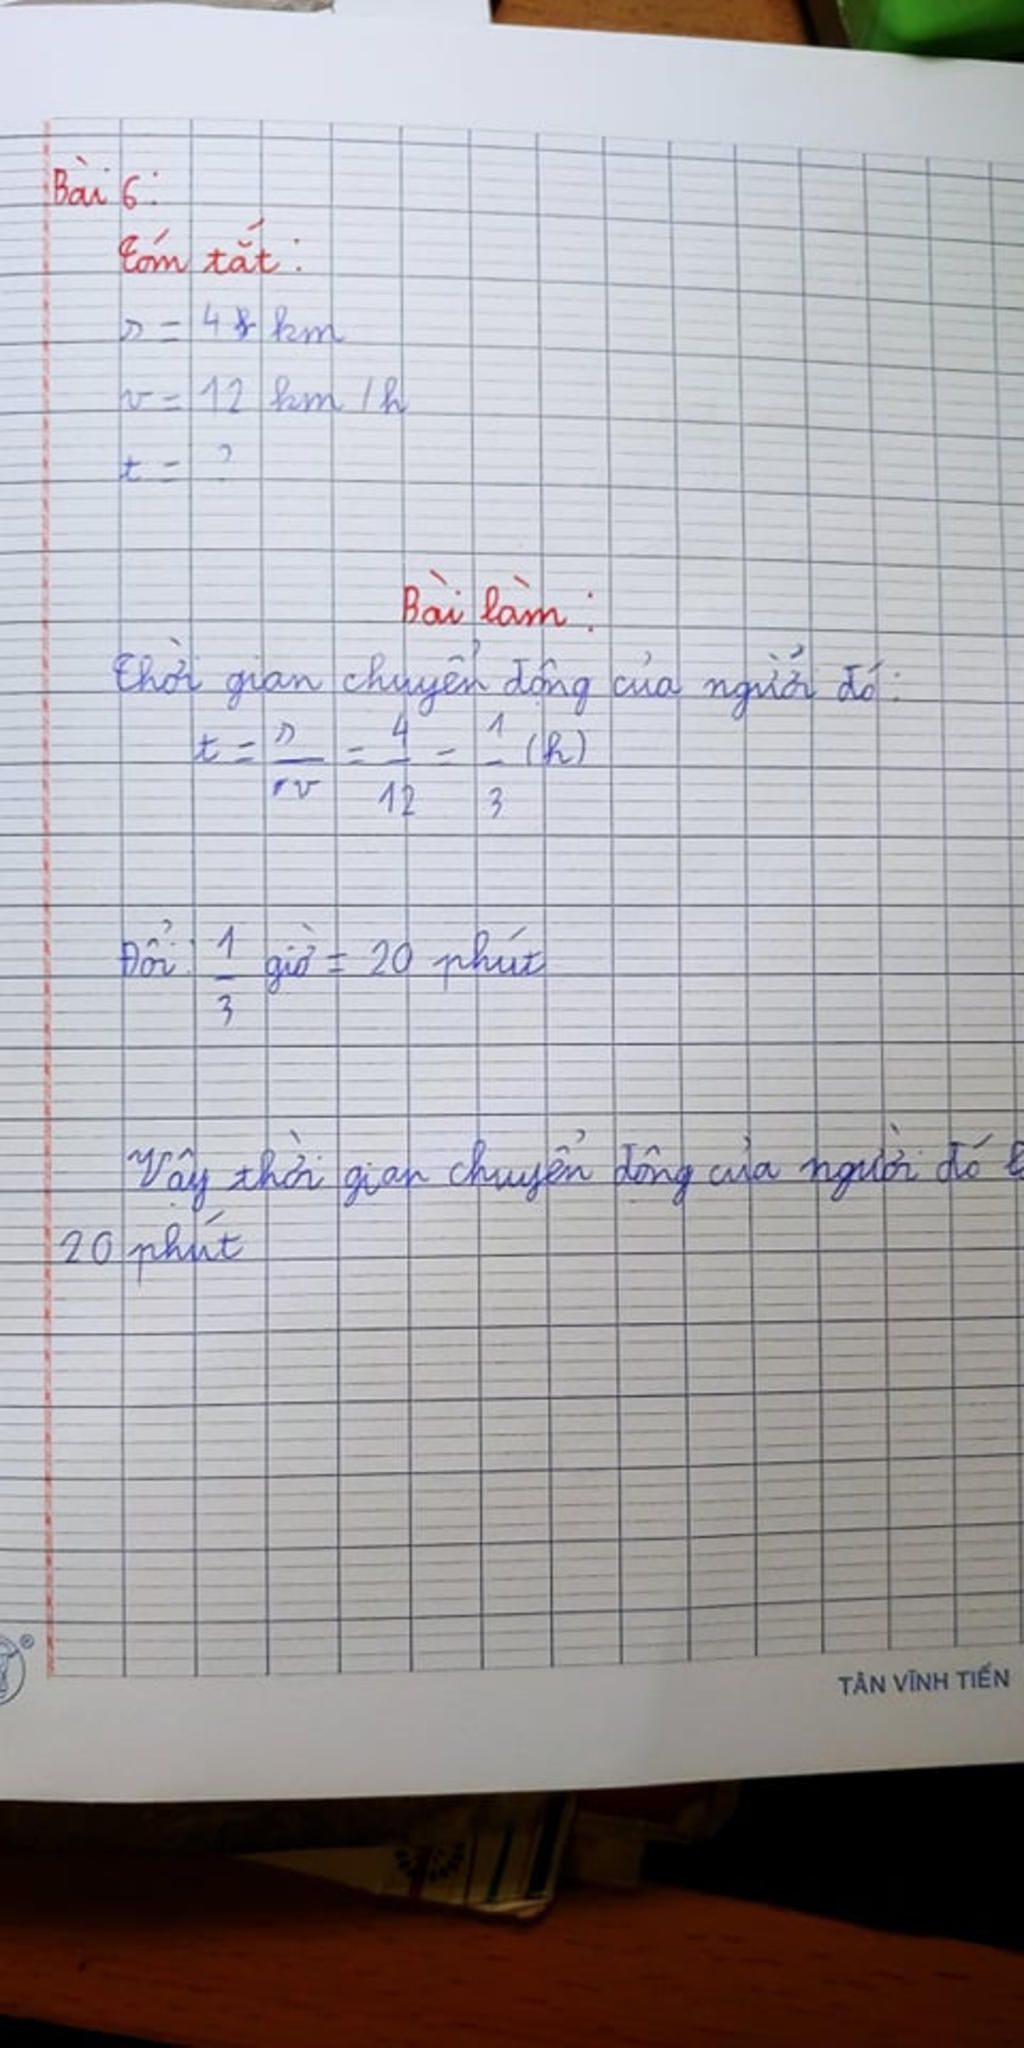 Bài 6:
Tóm tắt:
s = 4 km
v = 12 km/h
t = ?
Bài làm:
Thời gian chuyển động của người đó:
t = s/v = 4/12 = 1/3 (h)
Đổi: 1/3 giờ = 20 phút
Vậy thời gian chuyển động của người đó
20 phút
TÂN VĨNH TIẾN